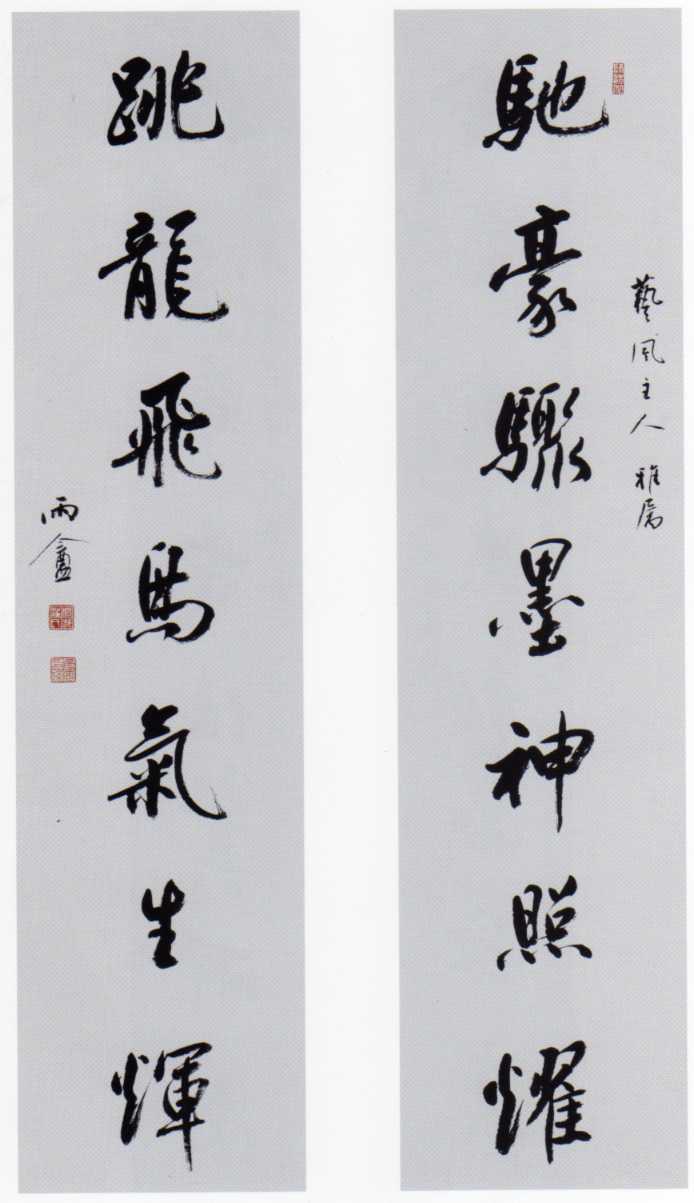 藝風主人雅屬
馳豪驟墨神照耀
跳龍飛馬氣生輝
雨盦